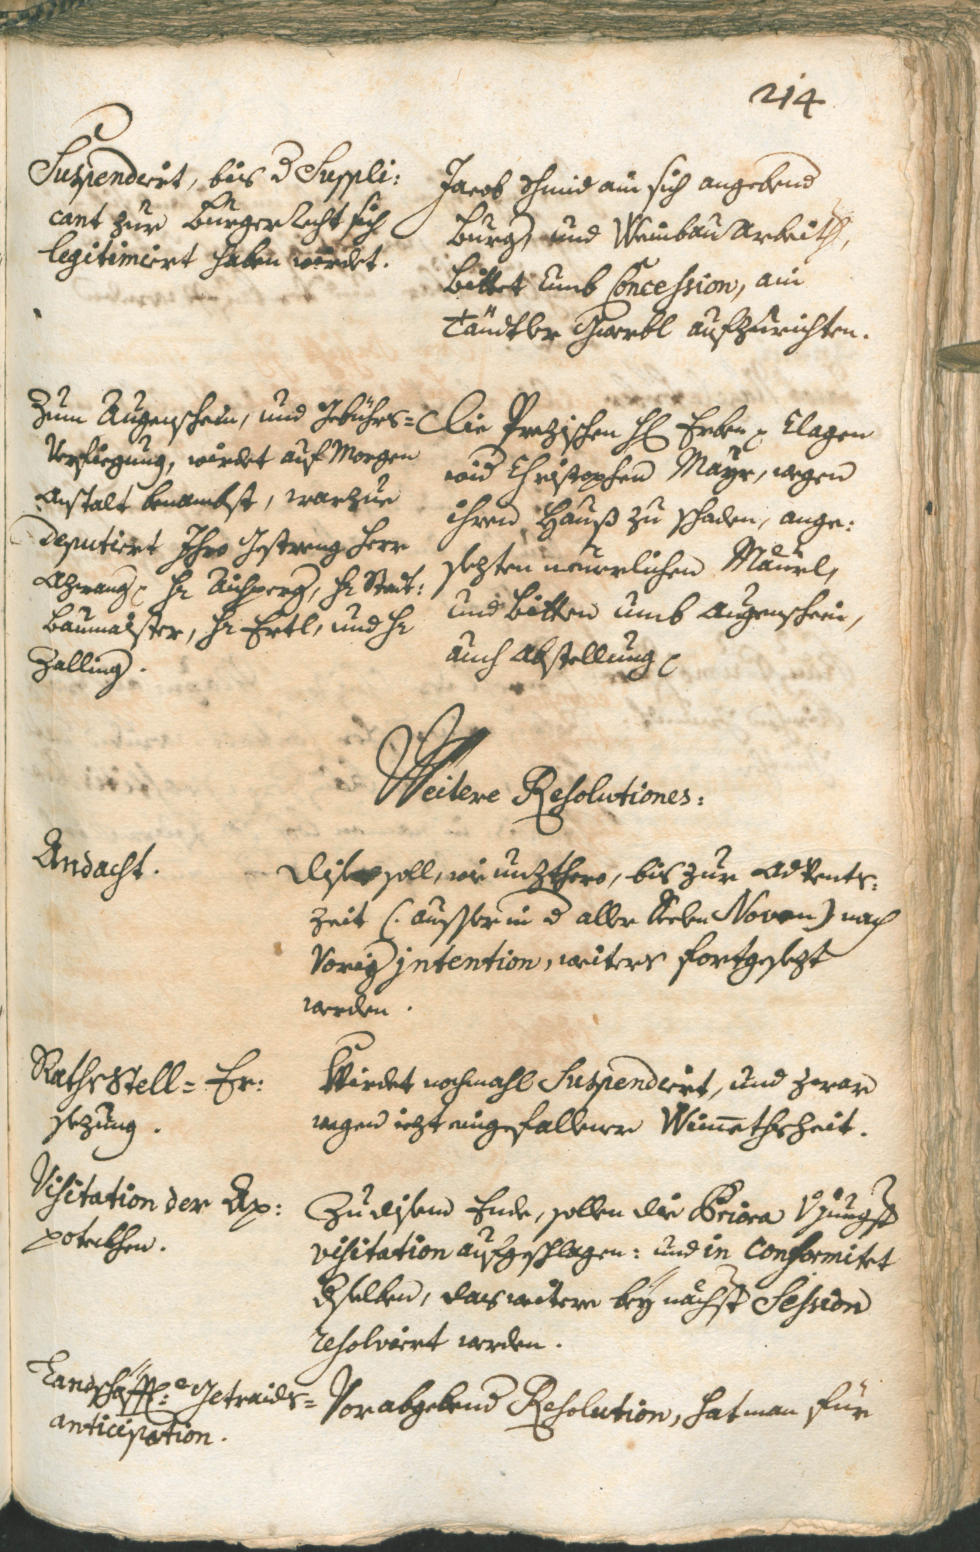 214
Suspendiert, bis d Suppli:
cant zur Burgerlecht sich
legitimiert haben würdet.
Jacob Schmid ain sich angebend
Burg und Weinbau Arbeith,
bittet umb Concession, ain
Tändtler Gwerbl aufzurichten.
Zum Augenschein, und Gebührs=
Verfüegung, würdet auf Morgen
Anstalt benambst, warzue
Deputiert Ihro Gestreng Herr
Azwang, H Aichperg, H Statt:
Baumaister, H Ertl, und H
Zalling.
Die Prezischen H Erben Clagen
wid Christophen Mayr, wegen
ihren Hauß zu schaden, ange:
sezten neuerlichen Maürl,
und bitten umb Augenschein,
auch Abstellung
Weitere Resolutiones:
Andacht.
Dise soll, wie unzthero, bis zur Advents:
zeit (: ausser in d aller Seelen Noven) nach
Vorig jntention, weiters fortgesezt
werden.
RathsStell= Er:
sezung.
Würdet nochmahl Suspendiert, und zwar
wegen iezt eingefallener Wimethszeit.
Visitation der Ap:
poteckhen.
Zu disem Ende, sollen die Priora Vjüngst
visitation aufgeschlagen: und in Conformitet
dselben, das weitere bey nächst Session
resolviert werden.
Landschäfftl: Getraids=
anticipation.
Vor abgebend Resolution, hat man für